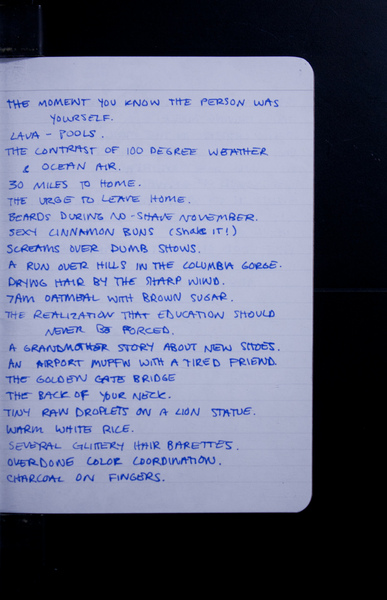 THE MOMENT YOU KNOW THE PERSON WAS
YOURSELF.
LAVA - POOLS.
THE CONTRAST OF 100 DEGREE WEATHER
& OCEAN AIR.
30 MILES TO HOME.
THE URGE TO LEAVE HOME.
BEARDS DURING NO-SHAVE NOVEMBER.
SEXY CINNAMON BUNS (Shake IT!)
SCREAMS OVER DUMB SHOWS.
A RUN OVER HILLS IN THE COLUMBIA GORGE.
DRYING HAIR BY THE SHARP WIND.
7AM OATMEAL WITH BROWN SUGAR.
THE REALIZATION THAT EDUCATION SHOULD
NEVER BE FORCED.
A GRANDMOTHER STORY ABOUT NEW SHOES.
AN AIRPORT MUFFIN WITH A TIRED FRIEND.
THE GOLDEN GATE BRIDGE
THE BACK OF YOUR NECK.
TINY RAIN DROPLETS ON A LION STATUE.
WARM WHITE RICE.
SEVERAL GLITTERY HAIR BARETTES.
OVERDONE COLOR COORDINATION.
CHARCOAL ON FINGERS.